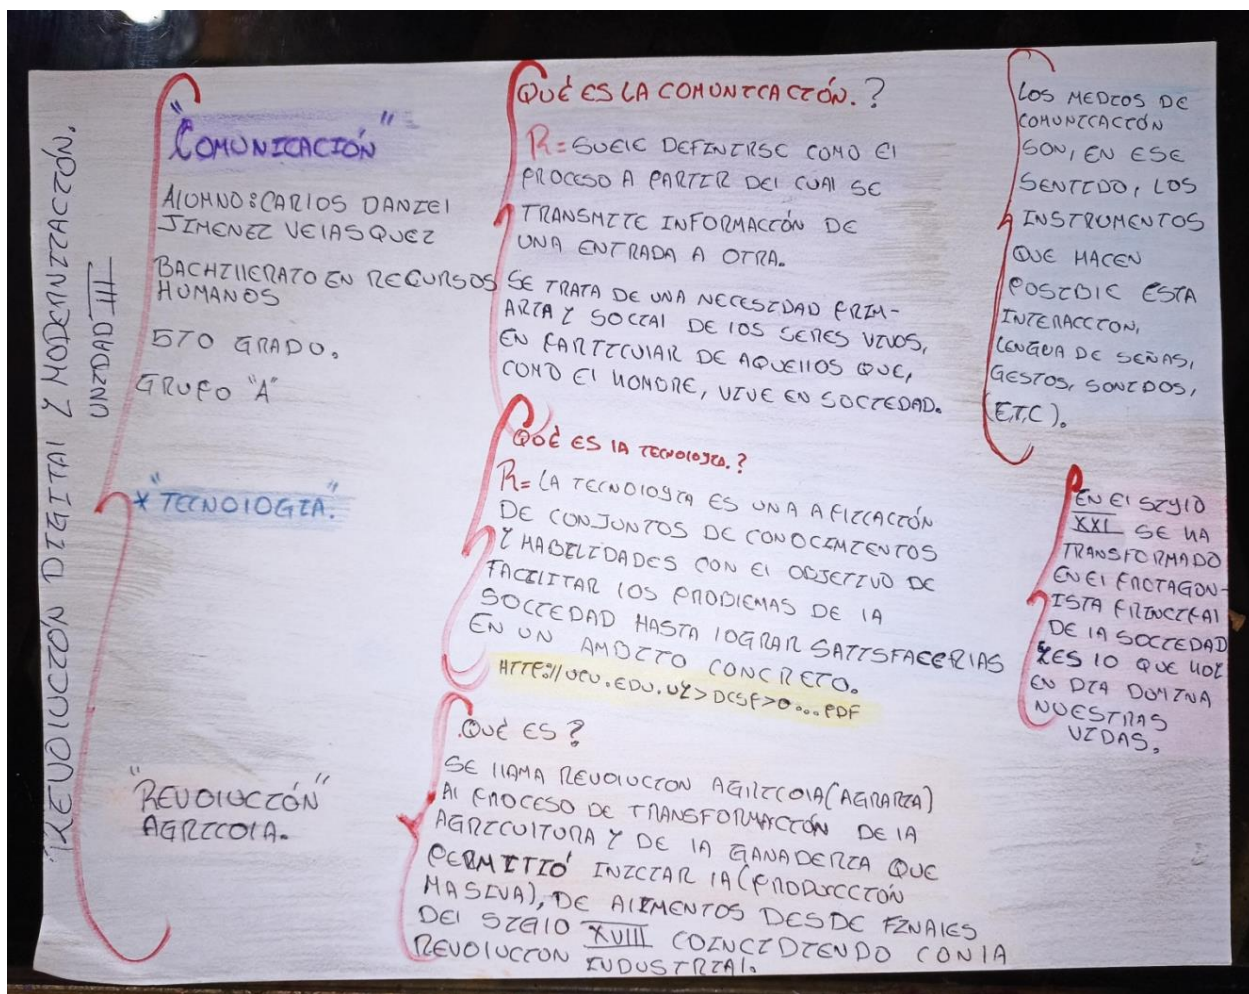 "REVOLUCION DIGITAL Y MODERNIZACIÓN.
"COMUNICACIÓN"
ALUMNO: CARLOS DANIEL
JIMENEZ VELASQUEZ
BACHILLERATO EN RECURSOS
HUMANOS
5TO GRADO.
GRUPO "A"
* "TECNOLOGIA."
"REVOLUCIÓN"
AGRICOLA.
QUÉ ES LA COMUNICACIÓN.?
R= SUELE DEFINIRSE COMO El
PROCESO A PARTIR DEl CUAL SE
TRANSMITE INFORMACIÓN DE
UNA ENTRADA A OTRA.
SE TRATA DE UNA NECESIDAD PRIM-
ARIA Y SOCIAL DE LOS SERES VIVOS,
EN PARTICULAR DE AQUELLOS QUE,
COMO El HOMBRE, VIVE EN SOCIEDAD.
QUÉ ES LA TECNOLOGIA.?
R= LA TECNOLOGIA ES UNA APLICACIÓN
DE CONJUNTOS DE CONOCIMIENTOS
Y HABILIDADES CON El OBJETIVO DE
FACILITAR LOS PROBLEMAS DE LA
SOCIEDAD HASTA LOGRAR SATISFACERLAS
EN UN AMBITO CONCRETO.
HTTP://UCU.EDU.UY>DCSP>0...PDF
QUÉ ES?
SE LLAMA REVOLUCION AGIRICOLA (AGRARIA)
Al PROCESO DE TRANSFORMACIÓN DE LA
AGRICULTURA Y DE LA GANADERIA QUE
PERMITIÓ INICIAR LA (PRODUCCIÓN
MASIVA), DE ALIMENTOS DESDE FINALES
DEL SIGLO XVIII COINCIDIENDO CON LA
REVOLUCION INDUSTRIAL.
LOS MEDIOS DE
COMUNICACIÓN
SON, EN ESE
SENTIDO, LOS
INSTRUMENTOS
QUE HACEN
POSIBLE ESTA
INTERACCION,
LENGUA DE SEÑAS,
GESTOS, SONIDOS,
(ETC).
EN El SIGLO
XXI SE HA
TRANSFORMADO
EN El PROTAGON-
ISTA PRINCIPAL
DE LA SOCIEDAD
Y ES LO QUE HOY
EN DIA DOMINA
NUESTRAS
VIDAS.